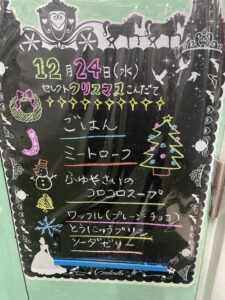 12月24日(水)
セレクトクリスマスこんだて
ごはん
ミートローフ
ふゆやさいの
コロコロスープ
ワッフル(プレーン・チョコ)
とうにゅうプリン
ソーダゼリー
Cinderella